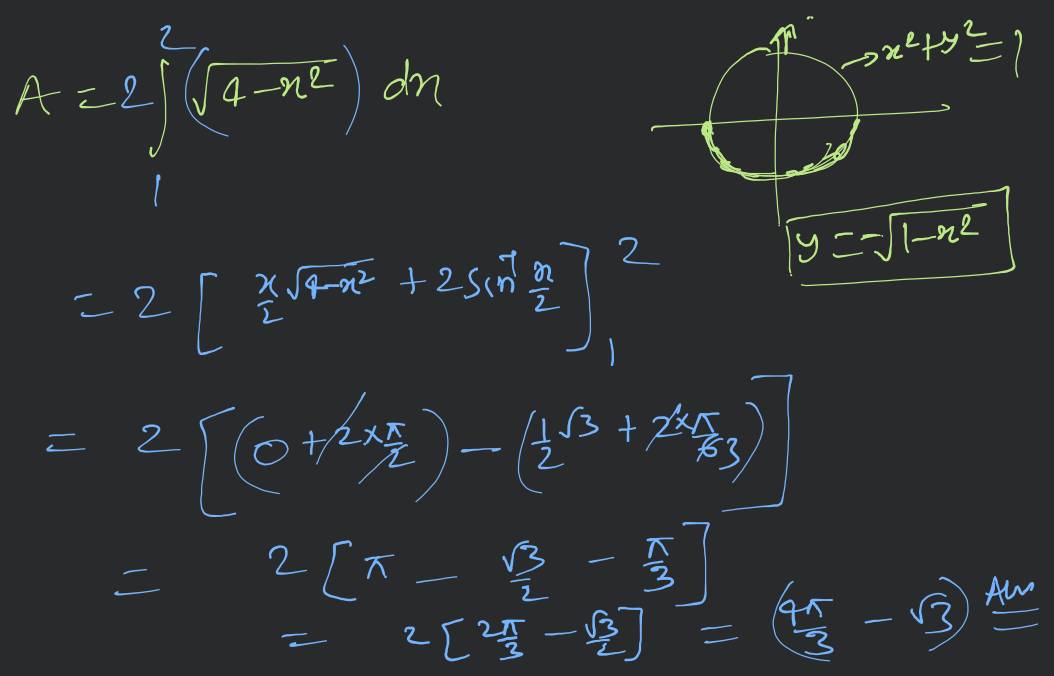 A = 2 ∫₁² (√(4-x²)) dx
→ x²+y² = 1
y = -√(1-x²)
= 2 [ x/2 √(4-x²) + 2 sin⁻¹ x/2 ]₁²
= 2 [ (0 + 2×π/2) - (1/2 √3 + 2×π/6 3) ]
= 2 [ π - √3/2 - π/3 ]
= 2 [ 2π/3 - √3/2 ] = (4π/3 - √3) Ans